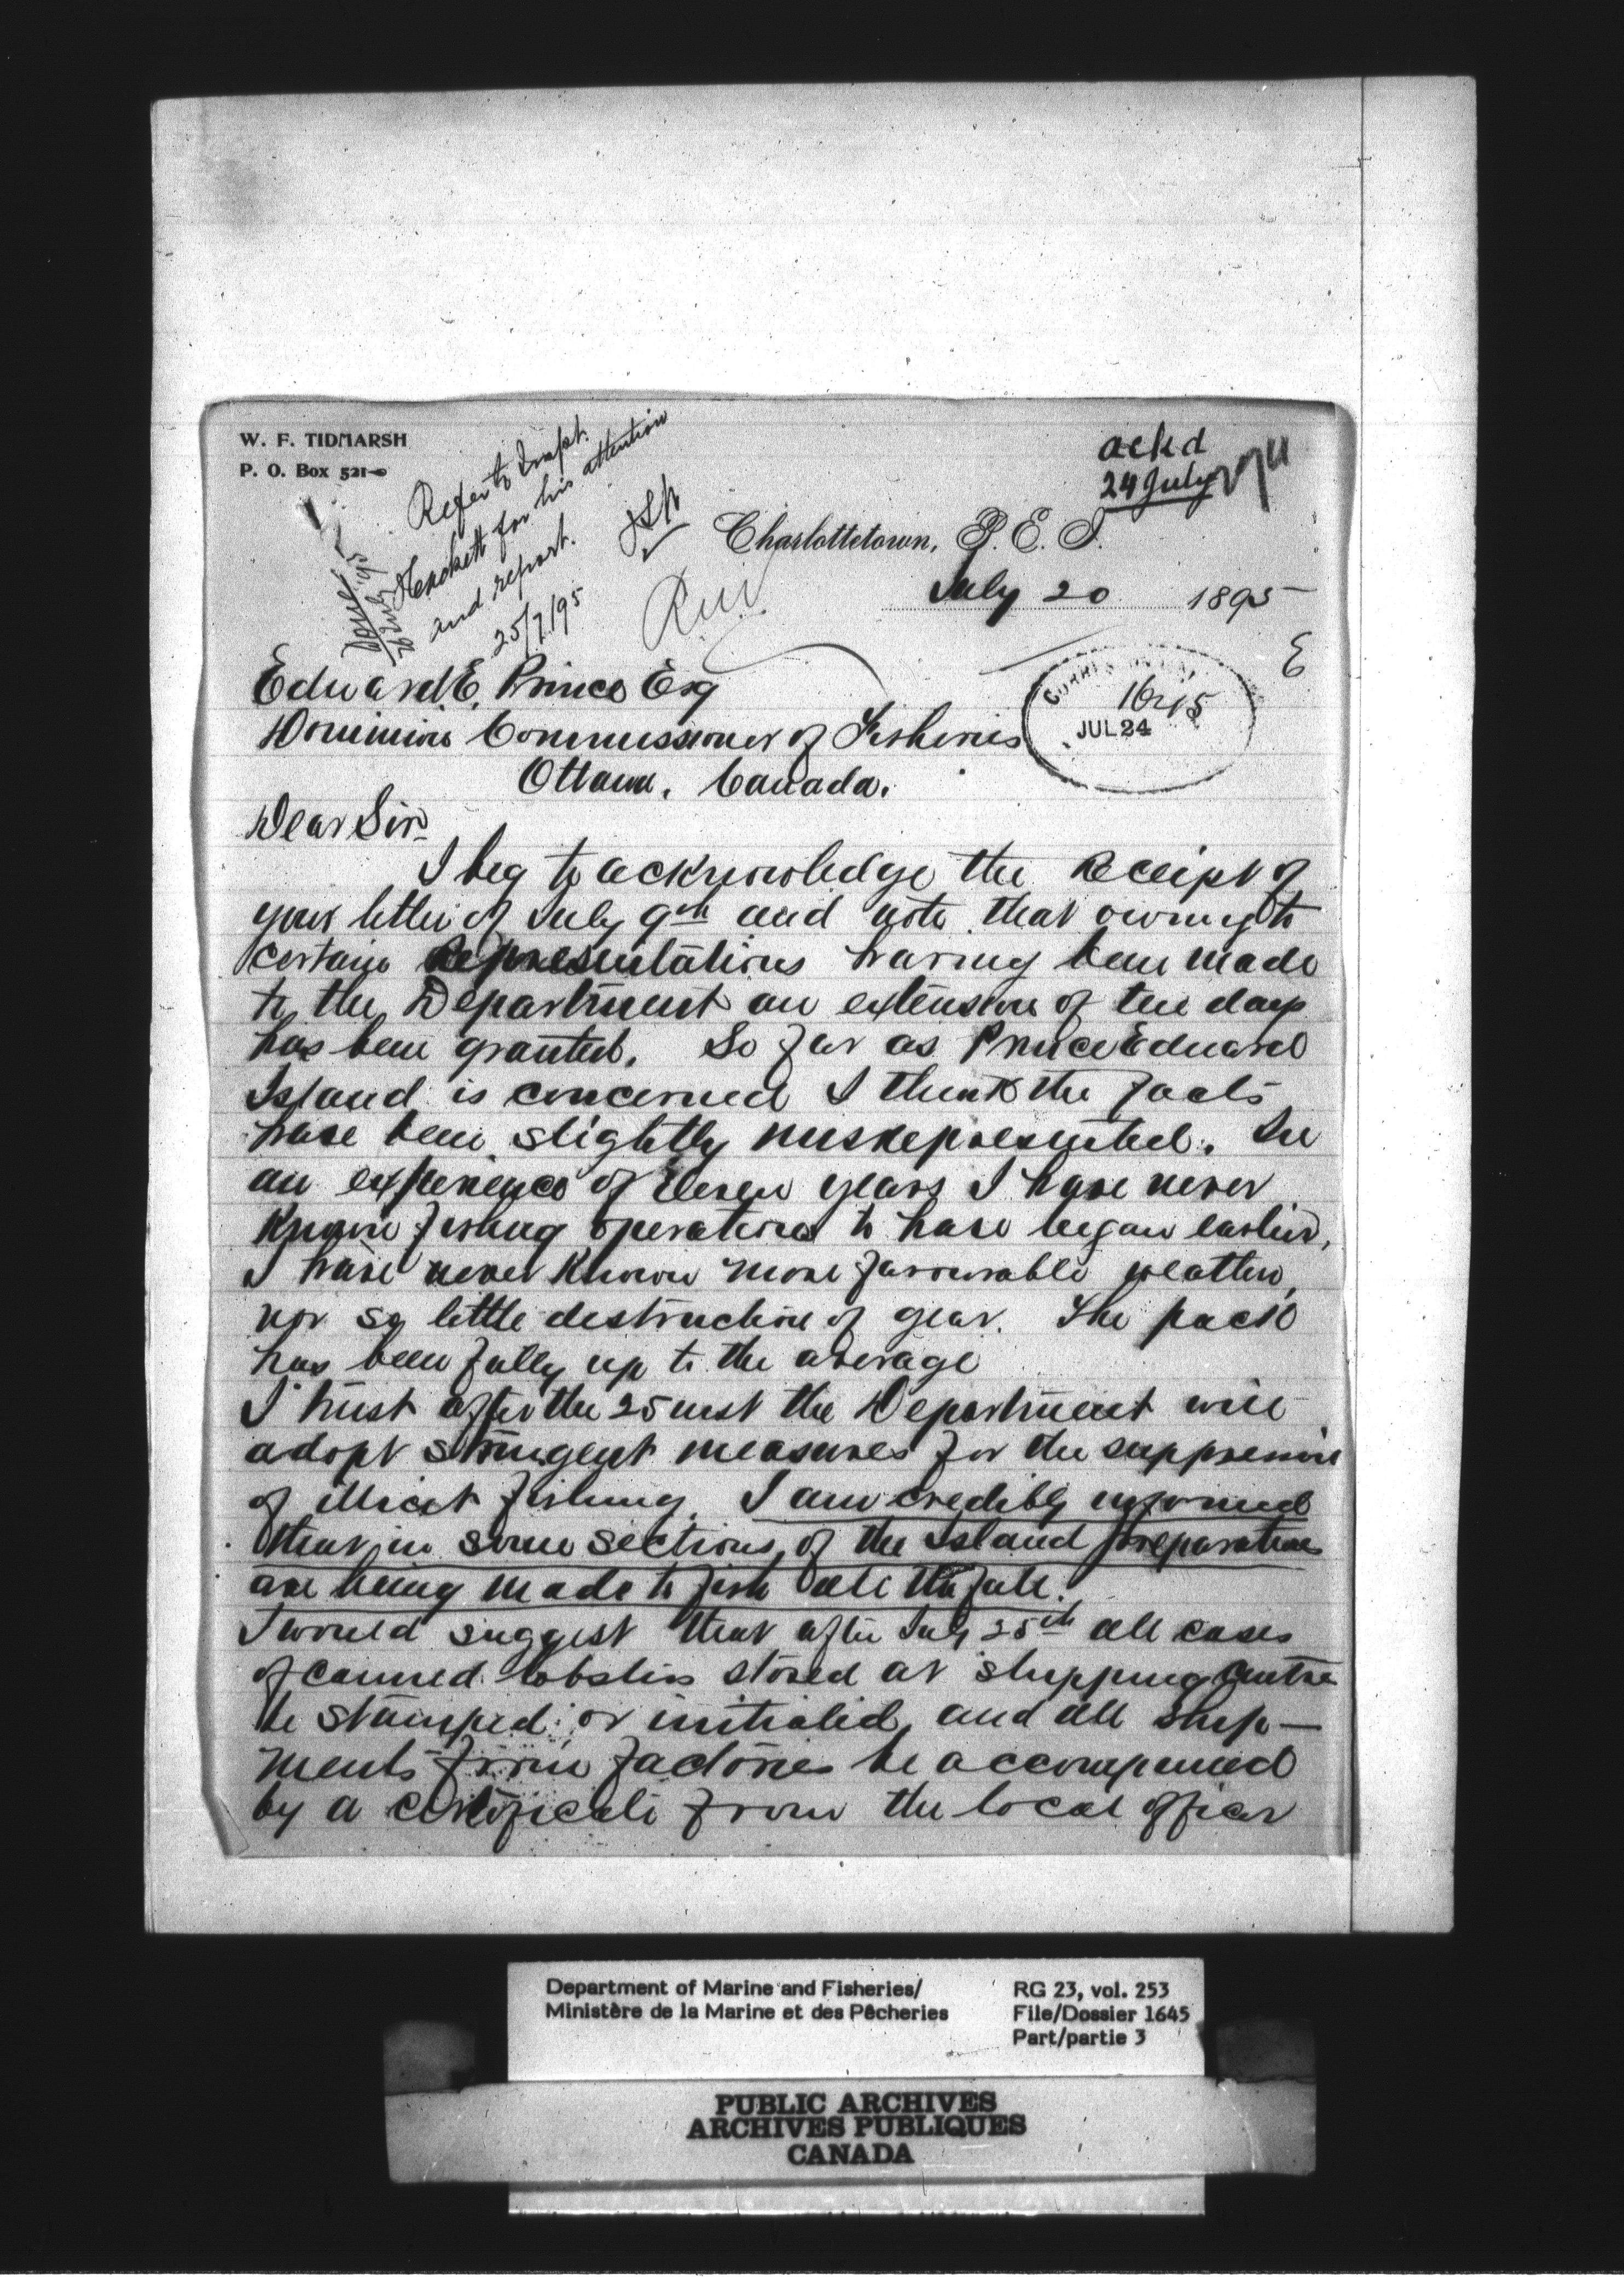 W. F. TIDMARSH
P. O. Box 521
Refer to Inspt.
Hackett for his attention
and report.
25/7/95
Done
26 July 95
ackd
24 July
Charlottetown, P. E. I.
July 20 1895
E
Edward E. Prince Esq
Dominion Commissioner of Fisheries
Ottawa, Canada.
1645
JUL 24
Dear Sir
I beg to acknowledge the Receipt of
your letter of July 9th and note that owing to
certain Representations having been made
to the Department an extension of ten days
has been granted. So far as Prince Edward
Island is concerned I think the facts
have been slightly misrepresented. In
an experience of Eleven years I have never
known fishing operations to have began earlier,
I have never known more favourable weather,
nor so little destruction of gear. The pack
has been fully up to the average
I trust after the 25 inst the Department will
adopt stringent measures for the suppression
of illicit fishing. I am credibly informed
that in some sections of the Island preparations
are being made to fish all the fall.
I would suggest that after July 25th all cases
of canned lobsters stored at shipping centres
be stamped or initialed, and all ship-
ments from factories be accompanied
by a certificate from the local officer
Department of Marine and Fisheries/
Ministère de la Marine et des Pêcheries
RG 23, vol. 253
File/Dossier 1645
Part/partie 3
PUBLIC ARCHIVES
ARCHIVES PUBLIQUES
CANADA